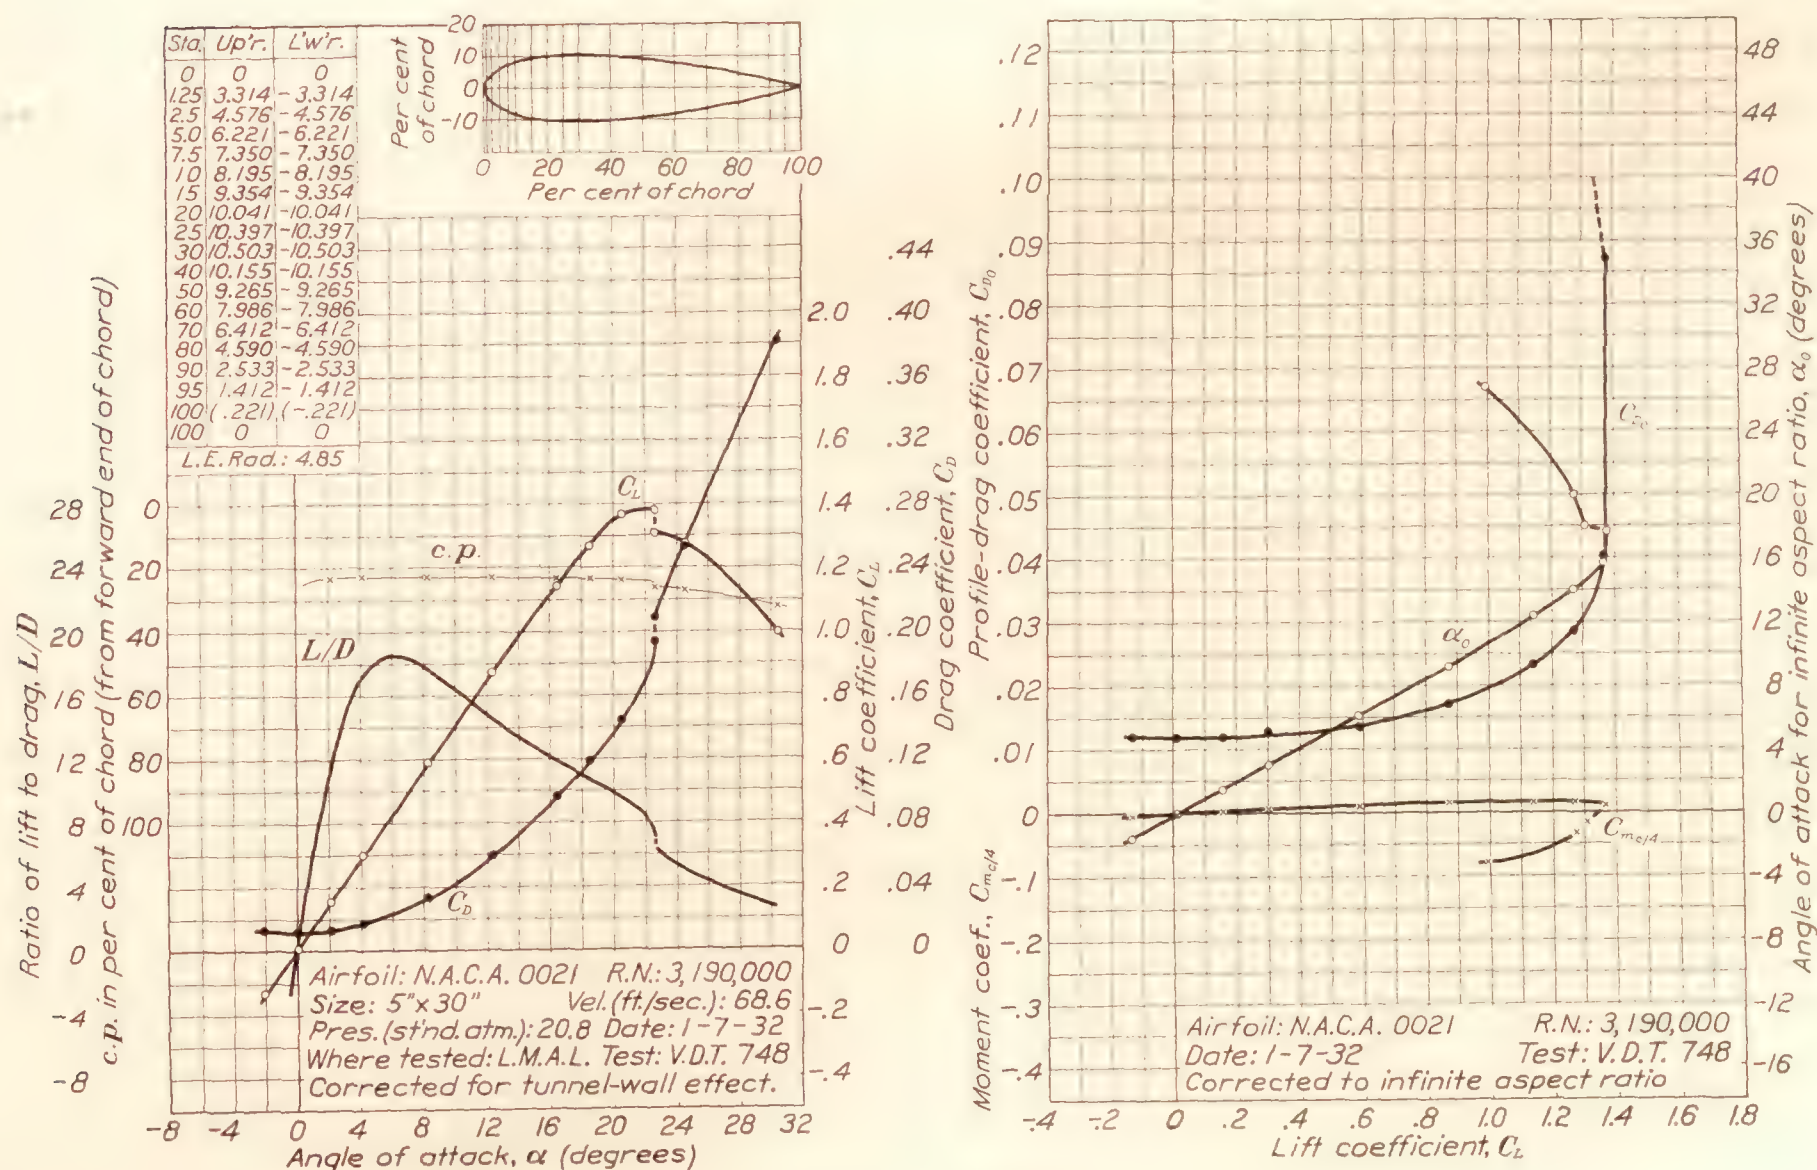 Sta. Up'r. L'w'r.
0 0 0
1.25 3.314 -3.314
2.5 4.576 -4.576
5.0 6.221 -6.221
7.5 7.350 -7.350
10 8.195 -8.195
15 9.354 -9.354
20 10.041 -10.041
25 10.397 -10.397
30 10.503 -10.503
40 10.155 -10.155
50 9.265 -9.265
60 7.986 -7.986
70 6.412 -6.412
80 4.590 -4.590
90 2.533 -2.533
95 1.412 -1.412
100 (.221) (-.221)
100 0 0
L.E. Rad.: 4.85
Per cent of chord
20
10
0
-10
0 20 40 60 80 100
Per cent of chord
Ratio of lift to drag, L/D
28
24
20
16
12
8
4
0
-4
-8
c.p. in per cent of chord (from forward end of chord)
0
20
40
60
80
100
C_L
c.p.
L/D
C_D
2.0
1.8
1.6
1.4
1.2
1.0
.8
.6
.4
.2
0
-.2
-.4
Lift coefficient, C_L
.44
.40
.36
.32
.28
.24
.20
.16
.12
.08
.04
0
Drag coefficient, C_D
Airfoil: N.A.C.A. 0021 R.N.: 3,190,000
Size: 5"x30" Vel.(ft./sec.): 68.6
Pres.(st'nd. atm.): 20.8 Date: 1-7-32
Where tested: L.M.A.L. Test: V.D.T. 748
Corrected for tunnel-wall effect.
-8 -4 0 4 8 12 16 20 24 28 32
Angle of attack, α (degrees)
Profile-drag coefficient, C_D0
.12
.11
.10
.09
.08
.07
.06
.05
.04
.03
.02
.01
0
-.1
-.2
-.3
-.4
Moment coef., C_mc/4
C_D0
α_0
C_mc/4
48
44
40
36
32
28
24
20
16
12
8
4
0
-4
-8
-12
-16
Angle of attack for infinite aspect ratio, α_0 (degrees)
Airfoil: N.A.C.A. 0021 R.N.: 3,190,000
Date: 1-7-32 Test: V.D.T. 748
Corrected to infinite aspect ratio
-.4 -.2 0 .2 .4 .6 .8 1.0 1.2 1.4 1.6 1.8
Lift coefficient, C_L